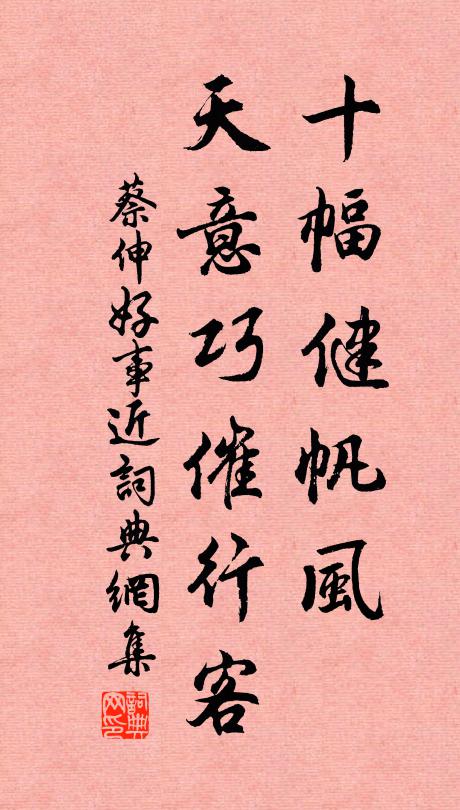 十幅健帆風
天意巧催行客
蔡伸好事近詞典網集
詞典網印